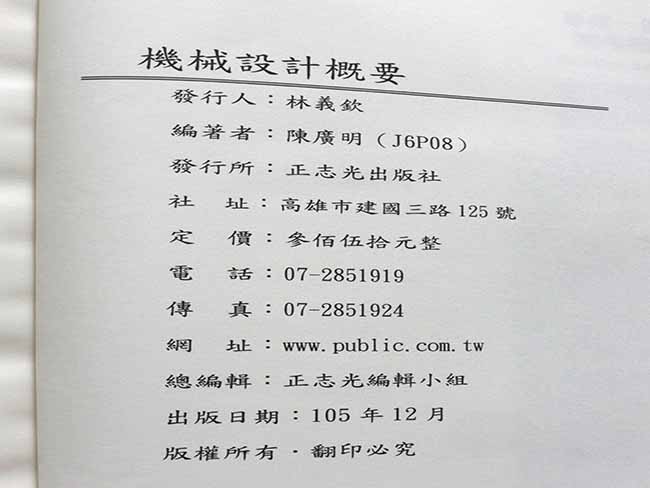 機械設計概要
發行人：林義欽
編著者：陳廣明（J6P08）
發行所：正志光出版社
社　址：高雄市建國三路125號
定　價：參佰伍拾元整
電　話：07-2851919
傳　真：07-2851924
網　址：www.public.com.tw
總編輯：正志光編輯小組
出版日期：105年12月
版權所有．翻印必究